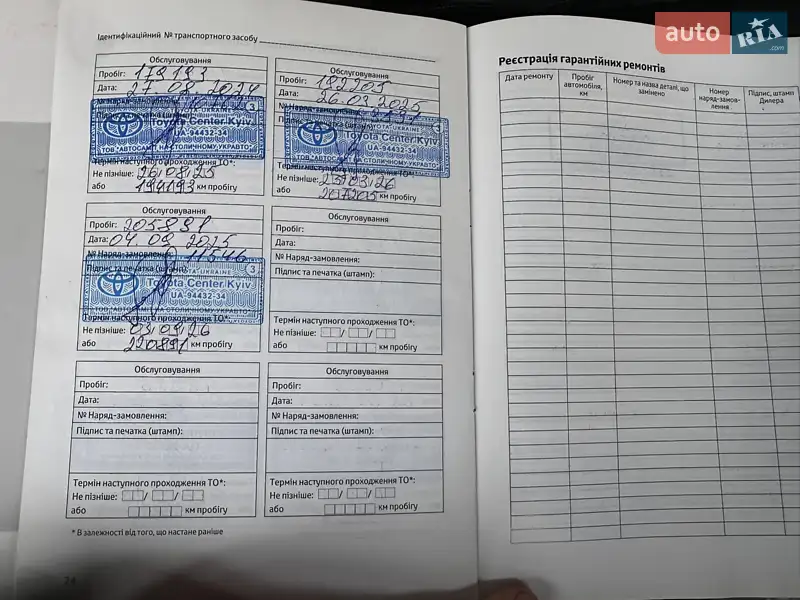 Ідентифікаційний № транспортного засобу
Обслуговування
Пробіг: 179193
Дата: 27.08.2024
Toyota Center Kyiv
UA-94432-34
ТОВ "АВТОСАМІТ НА СТОЛИЧНОМУ УКРАВТО"
Термін наступного проходження ТО*:
Не пізніше: 26.08.25
або 194193 км пробігу
Обслуговування
Пробіг: 192205
Дата: 26.03.2025
№ Наряд-замовлення:
TOYOTA-UKRAINE 3
Toyota Center Kyiv
UA-94432-34
ТОВ "АВТОСАМІТ НА СТОЛИЧНОМУ УКРАВТО"
Термін наступного проходження ТО*:
Не пізніше: 25.03.26
або 207205 км пробігу
Обслуговування
Пробіг: 205891
Дата: 04.09.2025
№ Наряд-замовлення: 11546
Підпис та печатка (штамп):
TOYOTA-UKRAINE 3
Toyota Center Kyiv
UA-94432-34
ТОВ "АВТОСАМІТ НА СТОЛИЧНОМУ УКРАВТО"
Термін наступного проходження ТО*:
Не пізніше: 03.09.26
або 220891 км пробігу
Обслуговування
Пробіг:
Дата:
№ Наряд-замовлення:
Підпис та печатка (штамп):
Термін наступного проходження ТО*:
Не пізніше: / /
або км пробігу
Обслуговування
Пробіг:
Дата:
№ Наряд-замовлення:
Підпис та печатка (штамп):
Термін наступного проходження ТО*:
Не пізніше: / /
або км пробігу
Обслуговування
Пробіг:
Дата:
№ Наряд-замовлення:
Підпис та печатка (штамп):
Термін наступного проходження ТО*:
Не пізніше: / /
або км пробігу
* В залежності від того, що настане раніше
24
Реєстрація гарантійних ремонтів
Дата ремонту
Пробіг
автомобіля,
км
Номер та назва деталі, що
замінено
Номер
наряд-замов-
лення
Підпис, штамп
Дилера
auto RIA .com